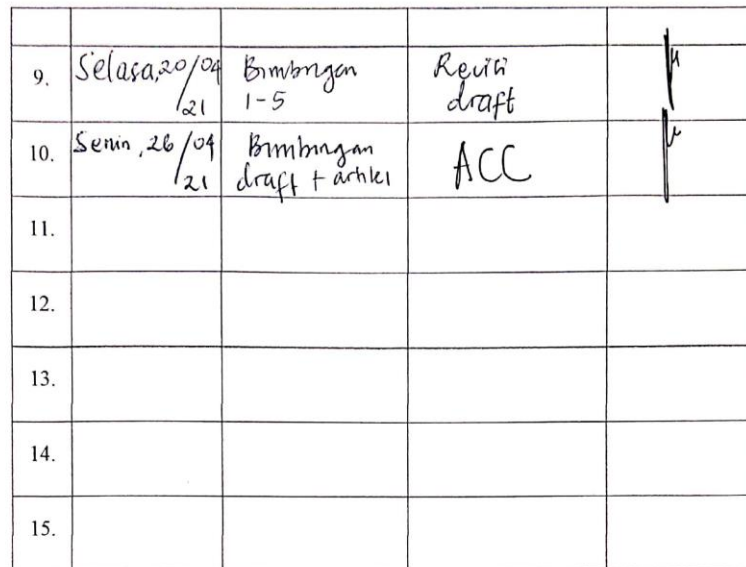 9. Selasa, 20/04/21 Bimbingan Revisi
1-5 draft
10. Senin, 26/04/21 Bimbingan ACC
draft + artikel
11.
12.
13.
14.
15.